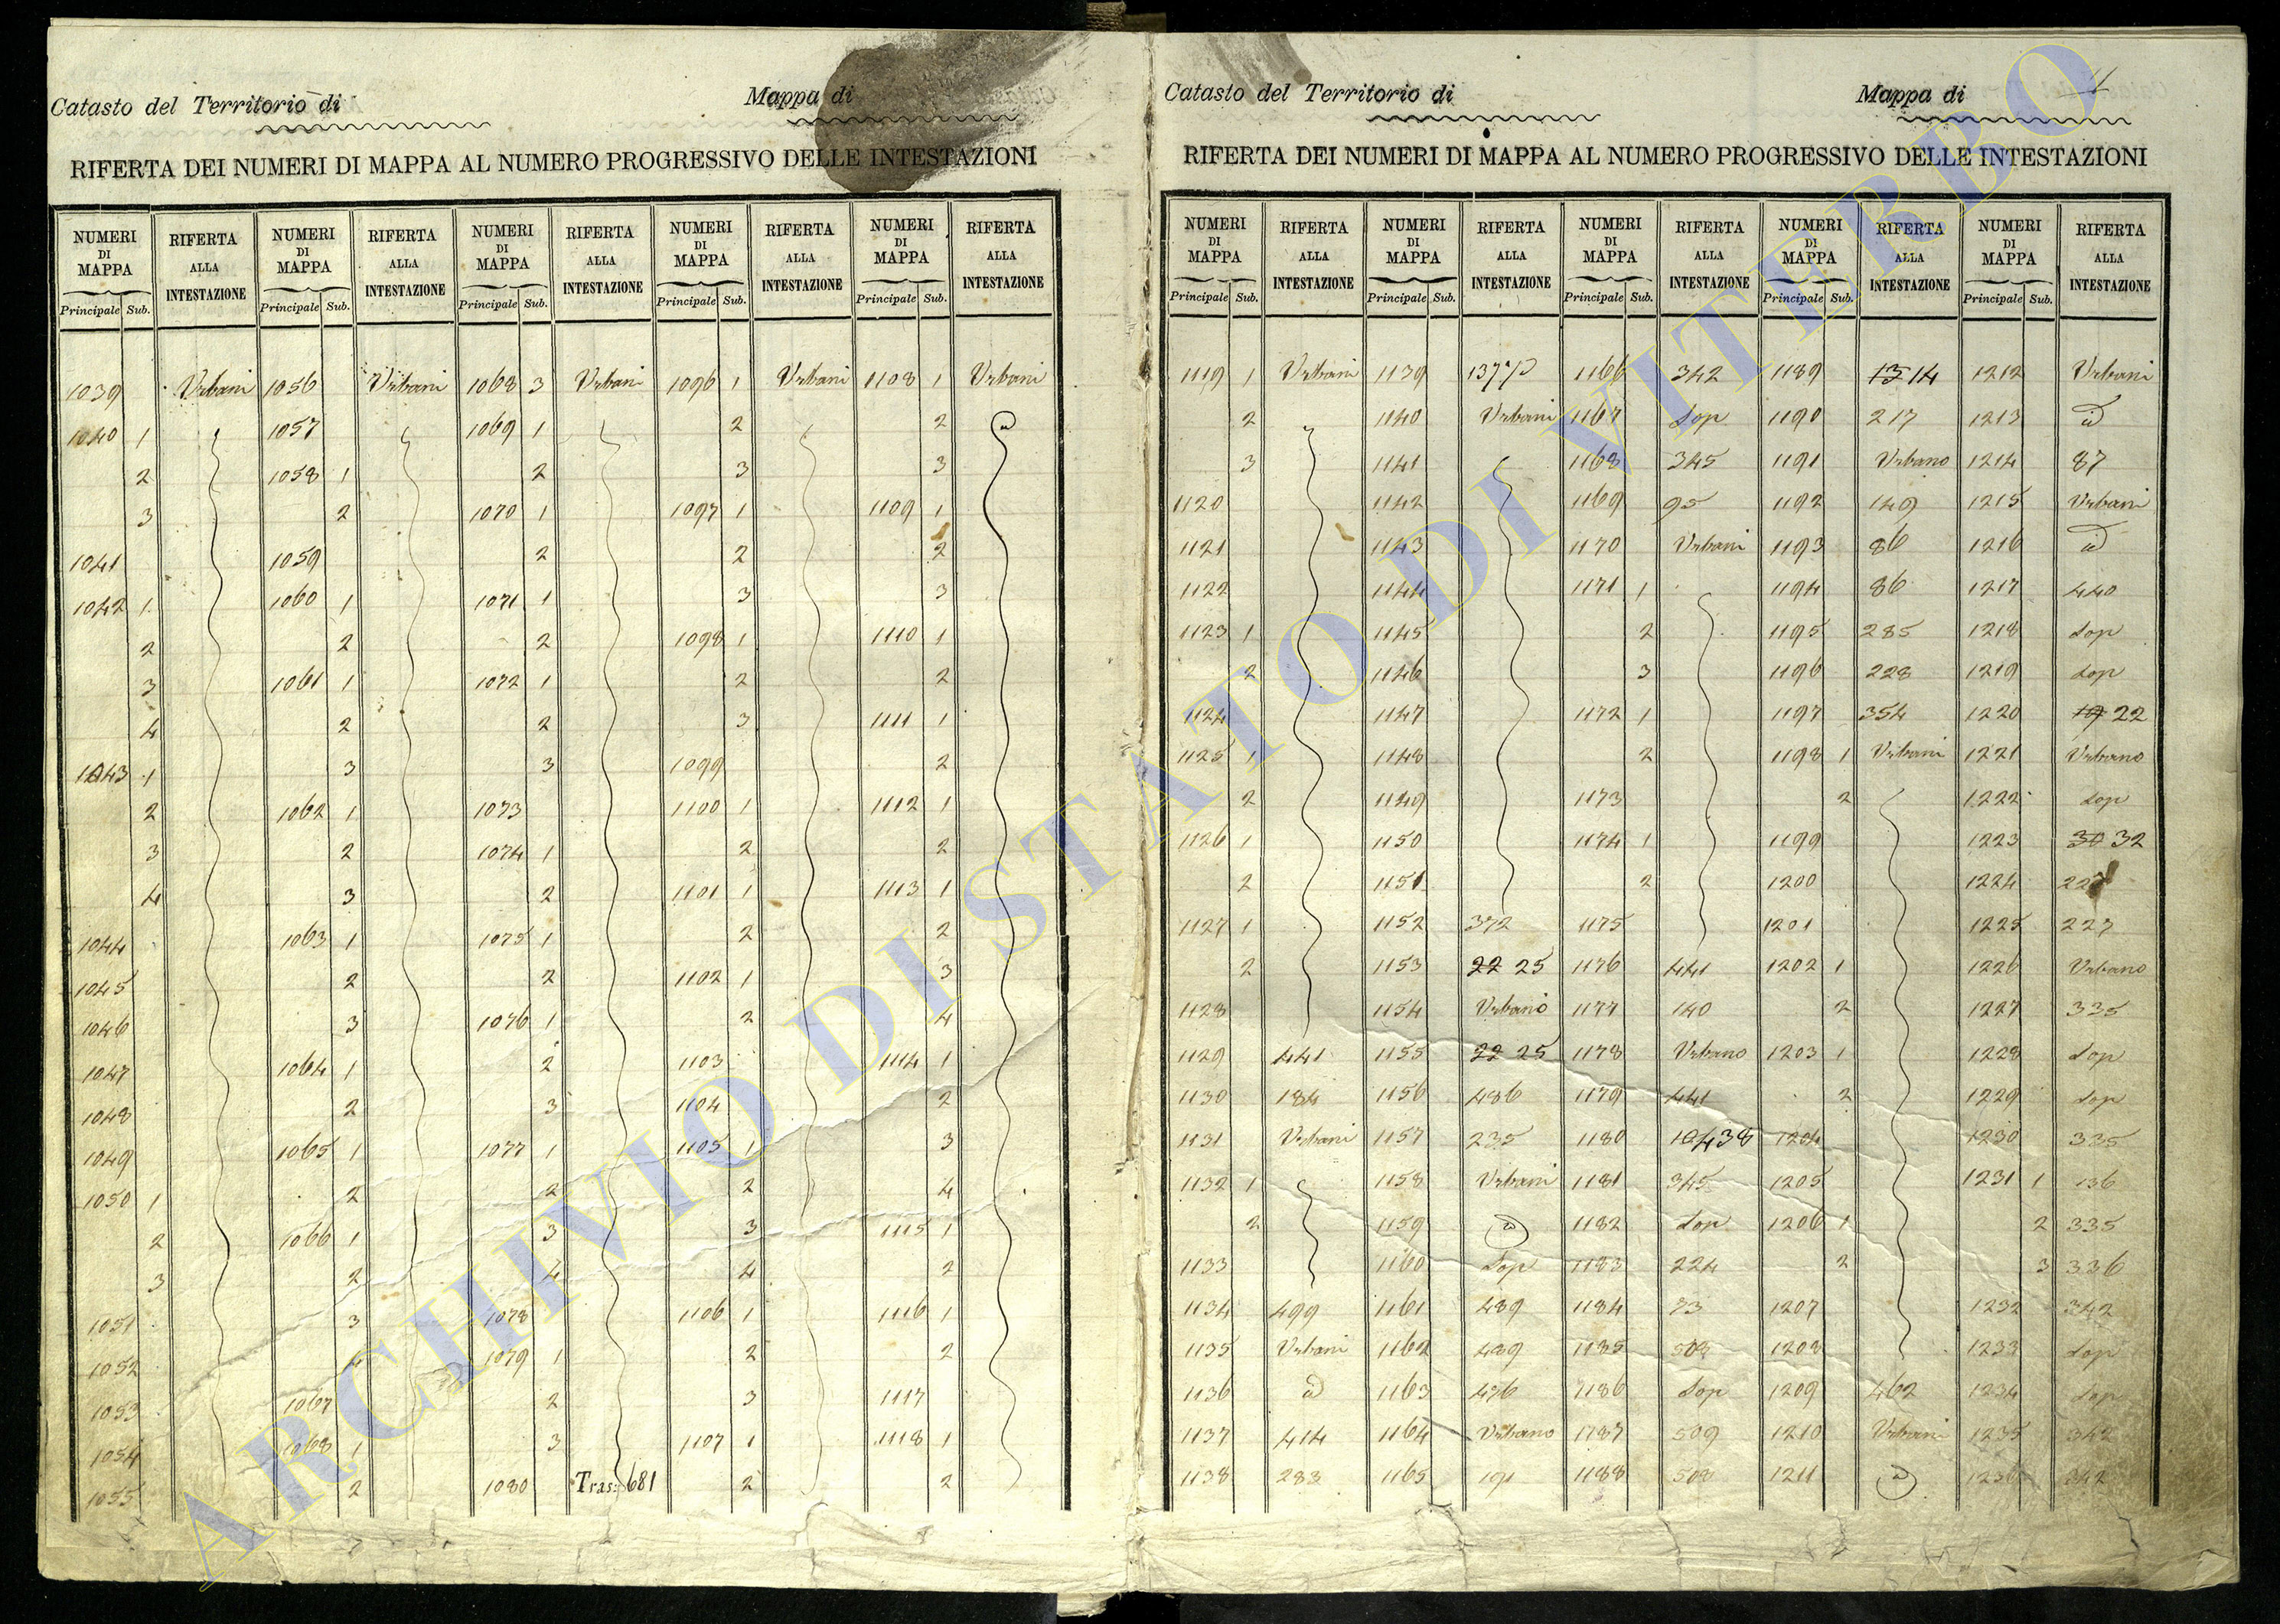 Catasto del Territorio di Mappa di
RIFERTA DEI NUMERI DI MAPPA AL NUMERO PROGRESSIVO DELLE INTESTAZIONI
NUMERI DI MAPPA RIFERTA ALLA INTESTAZIONE NUMERI DI MAPPA RIFERTA ALLA INTESTAZIONE NUMERI DI MAPPA RIFERTA ALLA INTESTAZIONE NUMERI DI MAPPA RIFERTA ALLA INTESTAZIONE NUMERI DI MAPPA RIFERTA ALLA INTESTAZIONE
Principale Sub. Principale Sub. Principale Sub. Principale Sub. Principale Sub.
1039 Urbani 1056 Urbani 1068 3 Urbani 1096 1 Urbani 1108 1 Urbani
1040 1 1057 1069 1 2 2 id
2 1058 1 2 3 3
3 2 1070 1 1097 1 1109 1
1041 1059 2 2 2
1042 1 1060 1 1071 1 3 3
2 2 2 1098 1 1110 1
3 1061 1 1072 1 2 2
4 2 2 3 1111 1
1043 1 3 3 1099 2
2 1062 1 1073 1100 1 1112 1
3 2 1074 1 2 2
4 3 2 1101 1 1113 1
1044 1063 1 1075 1 2 2
1045 2 2 1102 1 3
1046 3 1076 1 2 4
1047 1064 1 2 1103 1114 1
1048 2 3 1104 2
1049 1065 1 1077 1 1105 1 3
1050 1 2 2 2 4
2 1066 1 3 3 1115 1
3 2 4 4 2
1051 3 1078 1106 1 1116 1
1052 4 1079 1 2 2
1053 1067 2 3 1117
1054 1068 1 3 1107 1 1118 1
1055 2 1080 Tras: 681 2 2
Catasto del Territorio di Mappa di
RIFERTA DEI NUMERI DI MAPPA AL NUMERO PROGRESSIVO DELLE INTESTAZIONI
NUMERI DI MAPPA RIFERTA ALLA INTESTAZIONE NUMERI DI MAPPA RIFERTA ALLA INTESTAZIONE NUMERI DI MAPPA RIFERTA ALLA INTESTAZIONE NUMERI DI MAPPA RIFERTA ALLA INTESTAZIONE NUMERI DI MAPPA RIFERTA ALLA INTESTAZIONE
Principale Sub. Principale Sub. Principale Sub. Principale Sub. Principale Sub.
1119 1 Urbani 1139 1166 342 1189 13 14 1212 Urbani
2 1140 Urbani 1167 Sop 1190 217 1213 id
3 1141 1168 345 1191 Urbano 1214 87
1120 1142 1169 95 1192 149 1215 Urbani
1121 1143 1170 Urbani 1193 86 1216 id
1122 1144 1171 1 1194 86 1217 440
1123 1 1145 2 1195 285 1218 Sop
2 1146 3 1196 228 1219 Sop
1124 1147 1172 1 1197 354 1220 19 22
1125 1 1148 2 1198 1 Urbani 1221 Urbano
2 1149 1173 2 1222 Sop
1126 1 1150 1174 1 1199 1223 30 32
2 1151 2 1200 1224
1127 1 1152 372 1175 1201 1225 227
2 1153 22 25 1176 441 1202 1 1226 Urbano
1128 1154 Urbano 1177 140 2 1227 335
1129 441 1155 22 25 1178 Urbano 1203 1 1228 Sop
1130 184 1156 486 1179 441 2 1229 Sop
1131 Urbani 1157 235 1180 1204 1230 335
1132 1 1158 Urbani 1181 345 1205 1231 1 136
2 1159 id 1182 Sop 1206 1 2 335
1133 1160 Sop 1183 224 2 3 336
1134 499 1161 489 1184 73 1207 1232 342
1135 Urbani 1162 489 1185 508 1208 1233 Sop
1136 id 1163 476 1186 Sop 1209 462 1234 Sop
1137 414 1164 Urbano 1187 509 1210 Urbani 1235 342
1138 283 1165 191 1188 508 1211 id 1236 342
ARCHIVIO DI STATO DI VITERBO